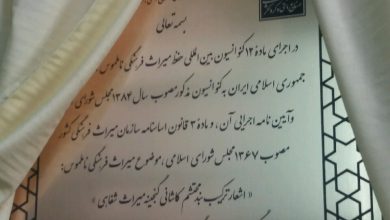 بسمه تعالی
در اجرای مادهٔ ۱۲ کنوانسیون بین المللی حفظ میراث فرهنگی ناملموس
جمهوری اسلامی ایران به کنوانسیون مذکور مصوب سال ۱۳۸۴ مجلس شورای
و آیین نامه اجرایی آن ، و مادهٔ ۳ قانون اساسنامه سازمان میراث فرهنگی کشور
مصوب ۱۳۶۷ مجلس شورای اسلامی ، موضوع میراث فرهنگی ناملموس :
« اشعار ترکیب بند محتشم کاشانی گنجینه میراث شفاهی »